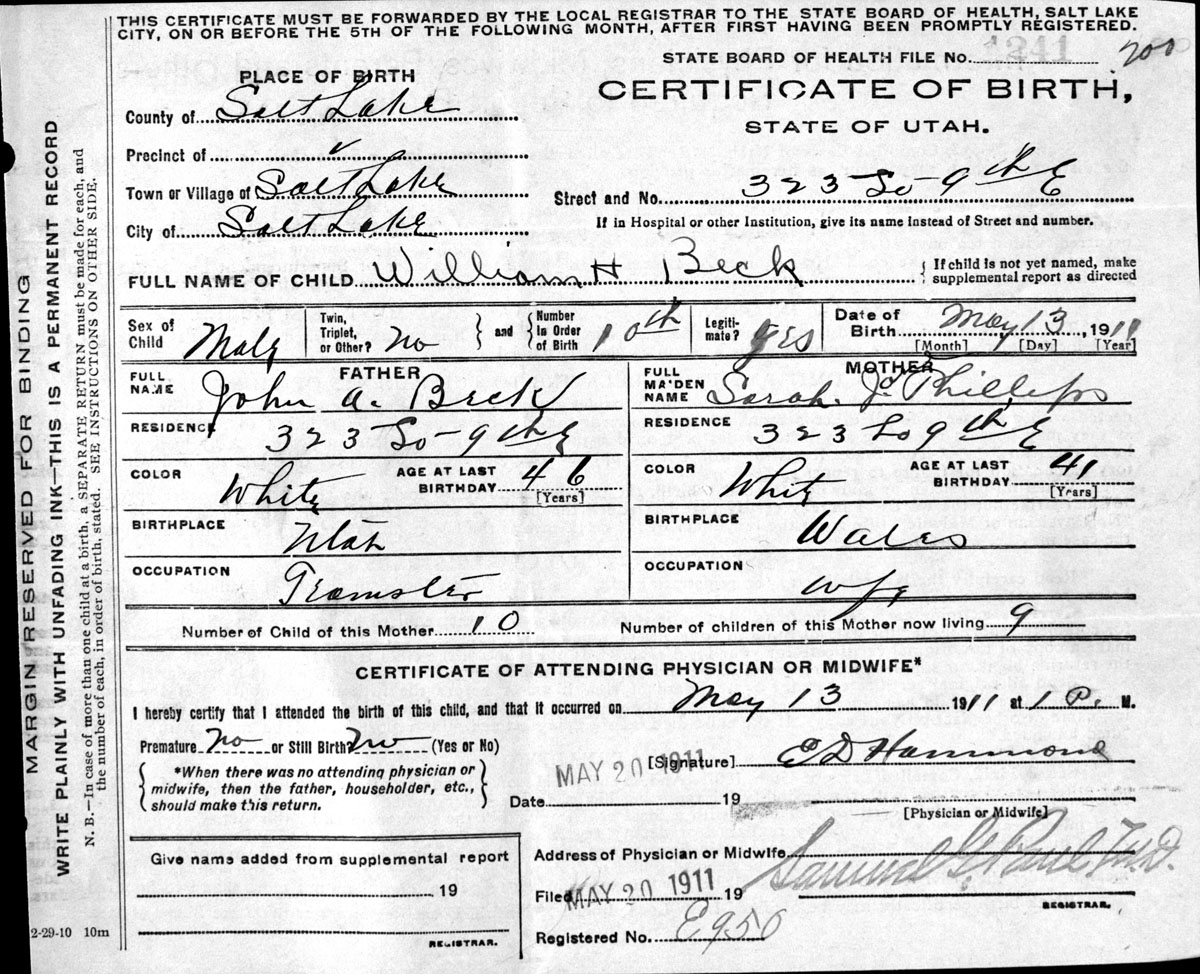 THIS CERTIFICATE MUST BE FORWARDED BY THE LOCAL REGISTRAR TO THE STATE BOARD OF HEALTH, SALT LAKE
CITY, ON OR BEFORE THE 5TH OF THE FOLLOWING MONTH, AFTER FIRST HAVING BEEN PROMPTLY REGISTERED.
STATE BOARD OF HEALTH FILE No. 1241 200
PLACE OF BIRTH
CERTIFICATE OF BIRTH,
STATE OF UTAH.
County of Salt Lake
Precinct of
Town or Village of Salt Lake
Street and No. 323 So-9th E
City of Salt Lake
If in Hospital or other Institution, give its name instead of Street and number.
FULL NAME OF CHILD William H Beck
{ If child is not yet named, make
supplemental report as directed
Sex of Child Male
Twin, Triplet, or Other? No } and { Number In Order of Birth 10th
Legiti-mate? yes
Date of Birth May 13, 1911
[Month] [Day] [Year]
FATHER
MOTHER
FULL NAME John A. Beck
FULL MAIDEN NAME Sarah J. Phillips
RESIDENCE 323 So-9th E
RESIDENCE 323 So 9th E
COLOR White AGE AT LAST BIRTHDAY 46 [Years]
COLOR White AGE AT LAST BIRTHDAY 41 (Years)
BIRTHPLACE Utah
BIRTHPLACE Wales
OCCUPATION Teamster
OCCUPATION wife
Number of Child of this Mother 10
Number of children of this Mother now living 9
CERTIFICATE OF ATTENDING PHYSICIAN OR MIDWIFE*
I hereby certify that I attended the birth of this child, and that it occurred on May 13 1911 at 1 P. M.
Premature? No or Still Birth? No (Yes or No)
*When there was no attending physician or
midwife, then the father, householder, etc.,
should make this return.
[Signature] E D Hammond
MAY 20 1911
Date 19
[Physician or Midwife]
Give name added from supplemental report
19
REGISTRAR.
Address of Physician or Midwife
Filed MAY 20 1911 19
Samuel G. Paul, M.D.
REGISTRAR.
Registered No. E950
2-29-10 10m
MARGIN RESERVED FOR BINDING
WRITE PLAINLY WITH UNFADING INK—THIS IS A PERMANENT RECORD
N. B.—In case of more than one child at a birth, a SEPARATE RETURN must be made for each, and
the number of each, in order of birth, stated. SEE INSTRUCTIONS ON OTHER SIDE.